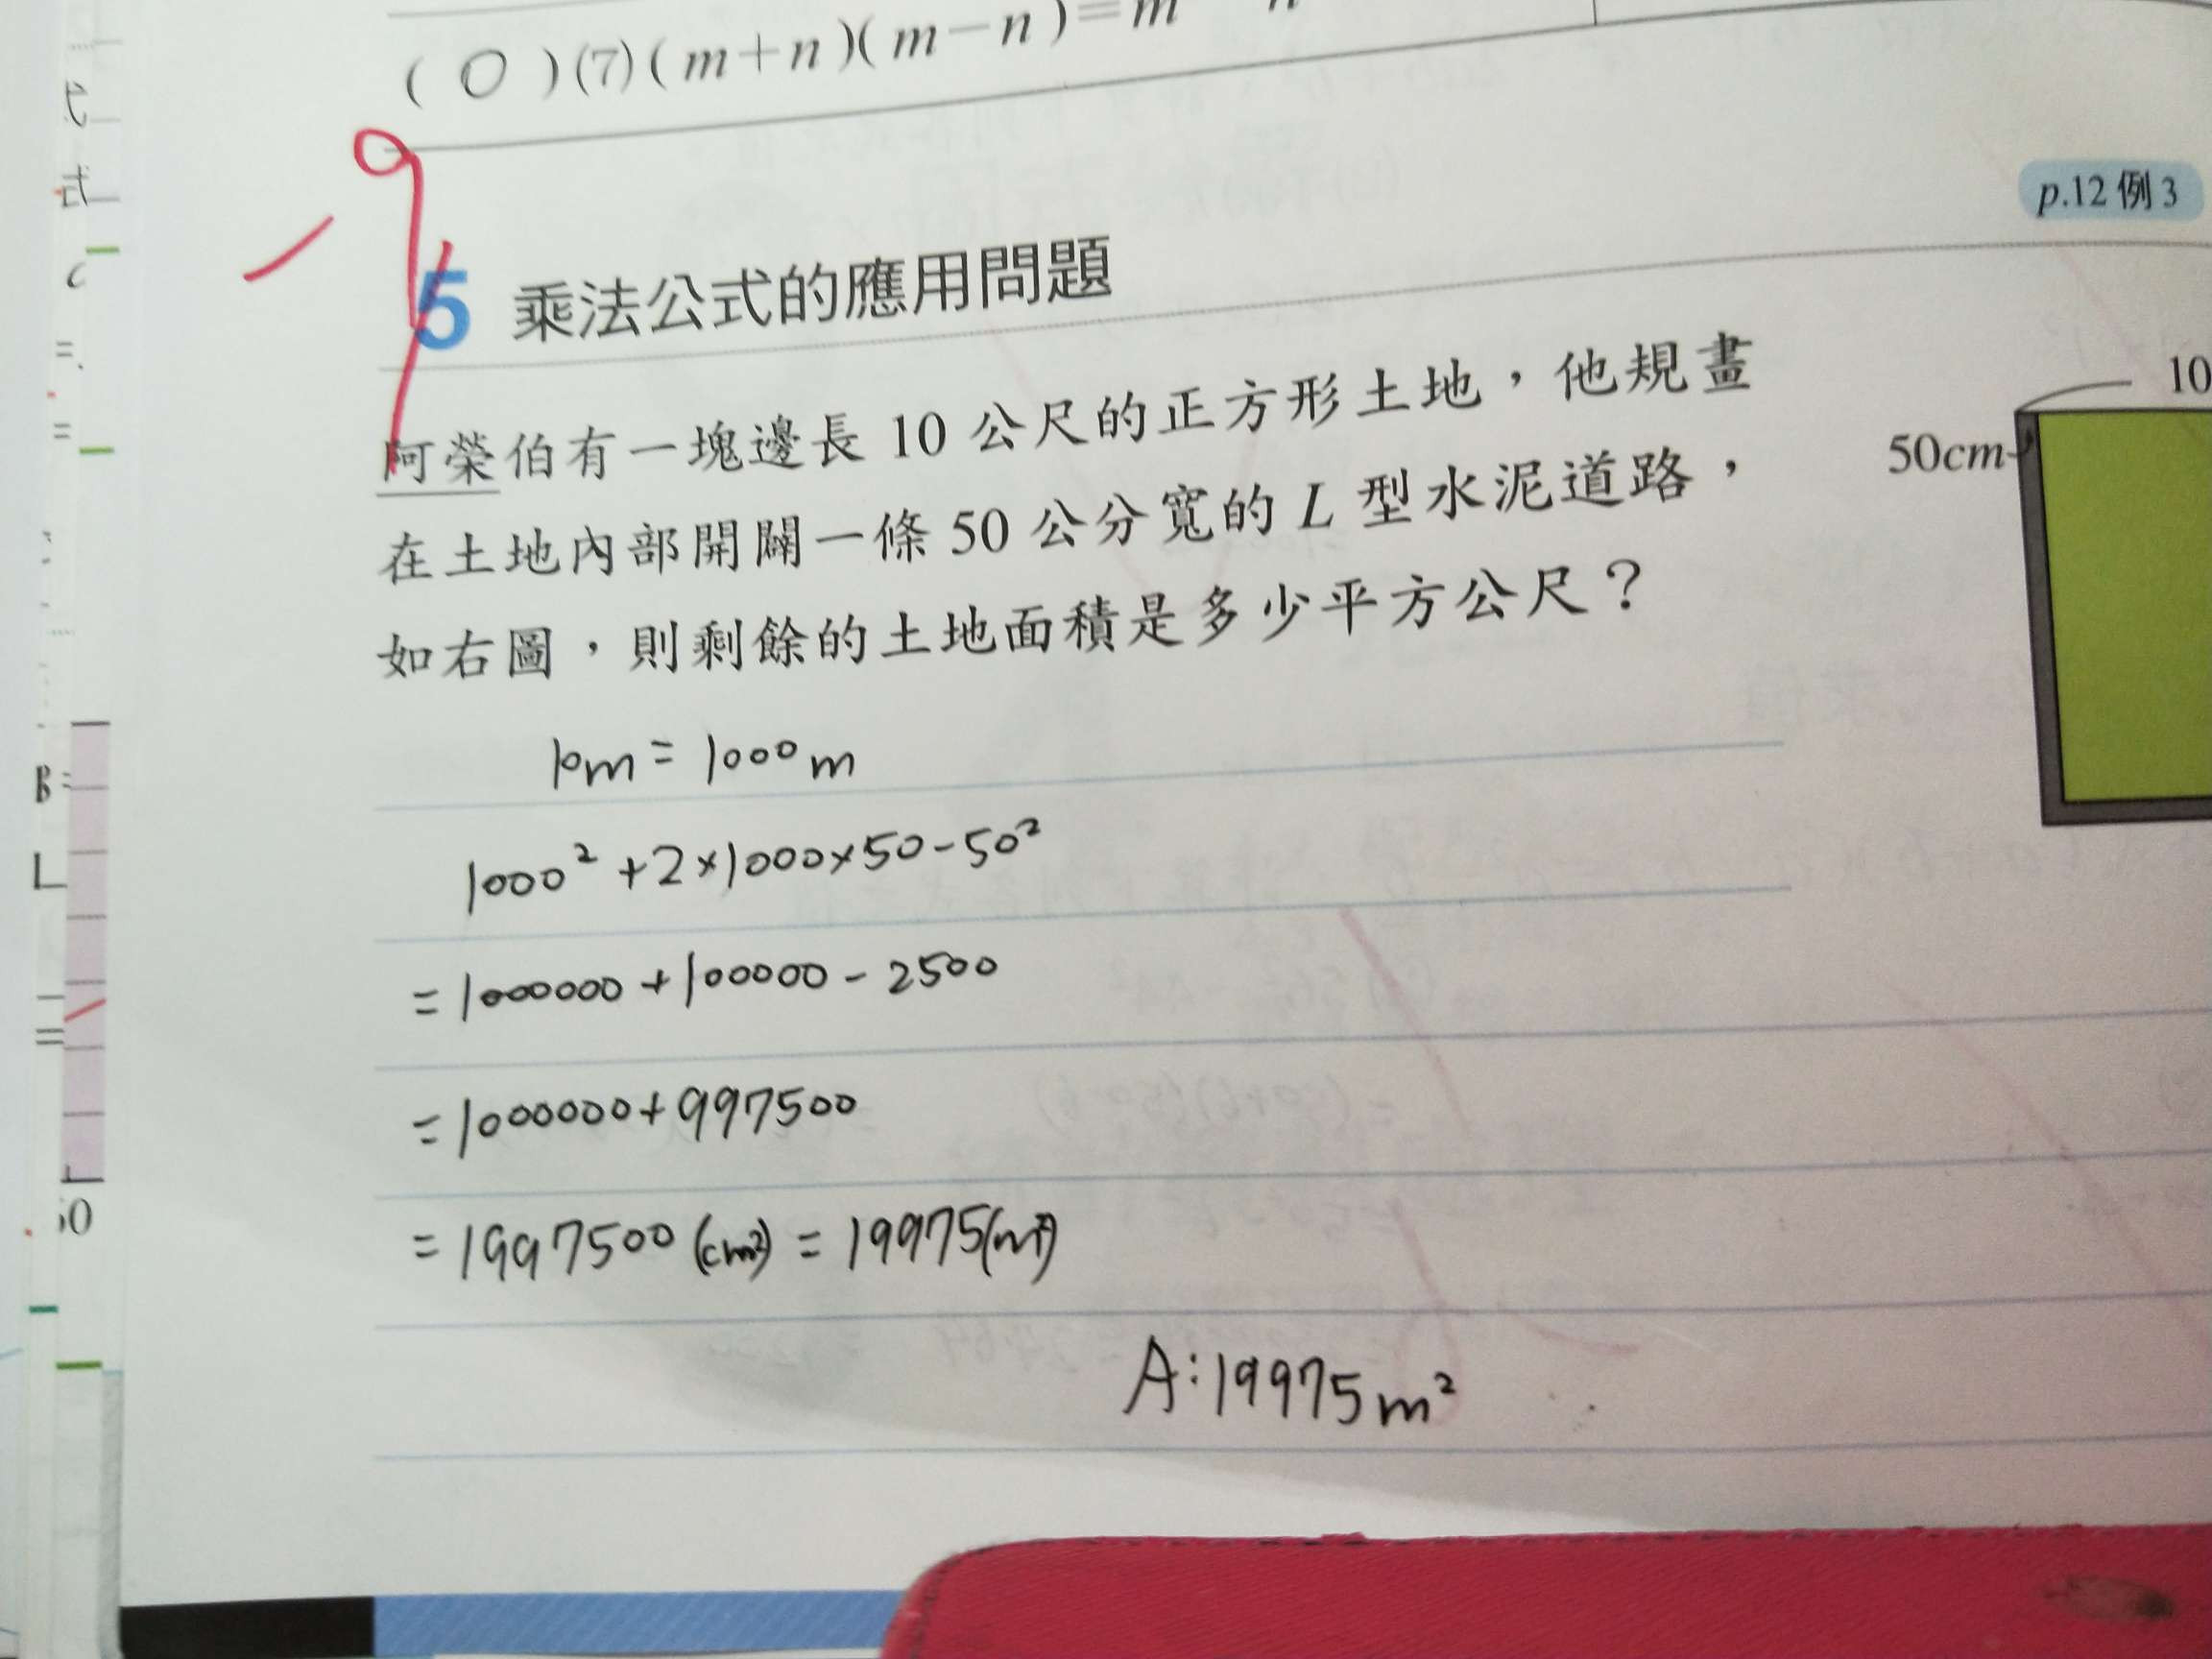 ( O )(7)(m+n)(m−n)=m n
p.12 例 3
5 乘法公式的應用問題
阿榮伯有一塊邊長 10 公尺的正方形土地，他規畫
在土地內部開闢一條 50 公分寬的 L 型水泥道路，
如右圖，則剩餘的土地面積是多少平方公尺？
10
50cm
10m = 1000m
1000² +2×1000×50-50²
=1000000+100000-2500
=1000000+997500
=1997500(cm²) = 19975(m²)
A:19975m²
式
式
50